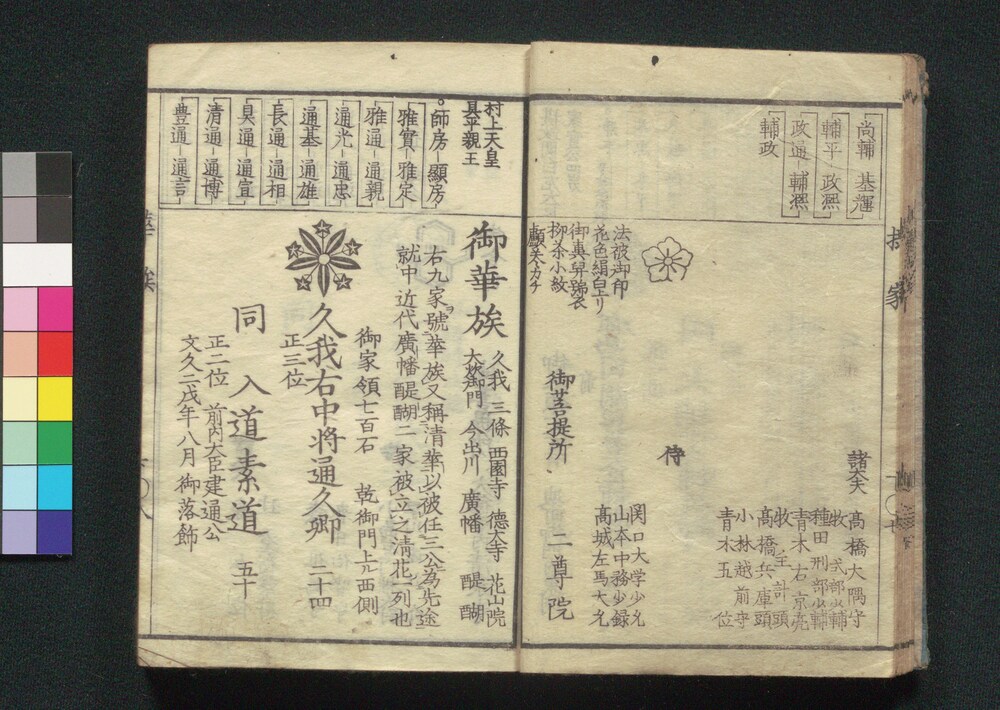 尚輔 基輝
輔平 政凞
政通 輔凞
輔政
諸大夫
高橋大隅守
牧式部少輔
種田刑部少輔
青木右京亮
牧主計頭
高橋兵庫頭
小林越前守
青木五位
侍
関口大学少允
山本中務少録
高城左馬大允
法被御印
花色絹白上リ
御輿舁號衣
柳茶小紋
御菩提所 二尊院
村上天皇
具平親王
師房 顯房
雅實 雅定
雅通 通親
通光 通忠
通基 通雄
長通 通相
具通 通宣
清通 通博
豊通 通言
御華族
久我 三條 西園寺 德大寺 花山院
大炊御門 今出川 廣幡 醍醐
右九家號華族又稱清華以被任三公為先途
就中近代廣幡醍醐二家被立之清花列也
御家領七百石 乾御門上ル西側
久我右中将通久卿 二十四
正三位
同 入道素道 五十
正二位 前内大臣建通公
文久二戌年八月御落飾